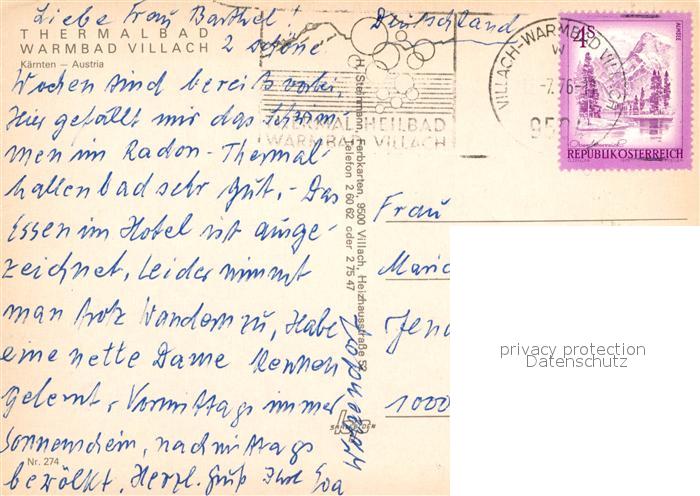 Liebe Frau Barthel!
THERMALBAD
WARMBAD VILLACH
Kärnten – Austria
2 schöne
Wochen sind bereits vorbei,
Hier gefällt mir das Schwim-
men im Radon-Thermal-
hallenbad sehr gut,- Das
Essen im Hotel ist ausge-
zeichnet, leider nimmt
man trotz Wandern zu, Habe
eine nette Dame kennen
gelernt, Vormittags immer
Sonnenschein, nachmittags
bewölkt, Herzl. Gruß Ihre Eva
Nr. 274
H. Steinmann, Farbkarten, 9500 Villach, Heizhausstraße 52
Telefon 2 60 62 oder 2 75 47
THERMAL-HEILBAD
WARMBAD VILLACH
VILLACH-WARMBAD VILLACH
4S
ALMSEE
REPUBLIK ÖSTERREICH
Deutschland
Frau
1000
privacy protection
Datenschutz